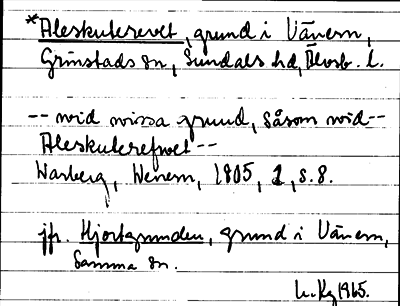 *Aleskuterevet, grund i Vänern,
Grinstads sn, Sundals hd, Älvsb. l.
-- wid wissa grund, såsom wid --
Aleskuterefwet --
Warberg, Wenern, 1805, 1, s. 8.
jfr. Hjortgrunden, grund i Vänern,
samma sn.
1965.